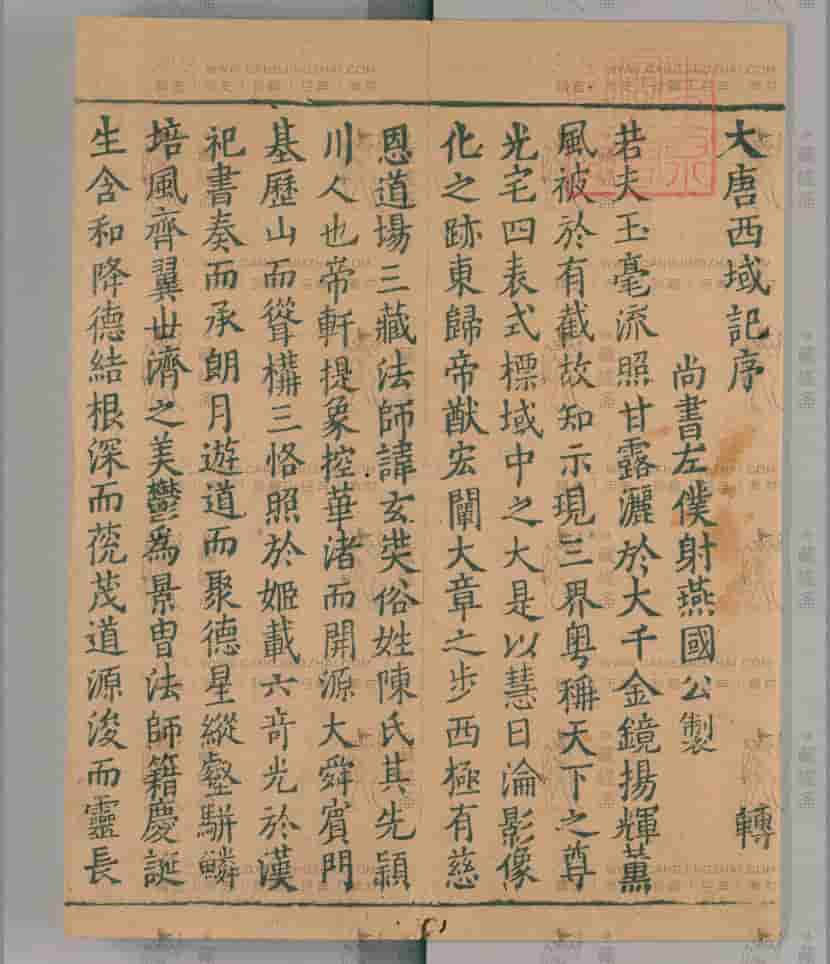 大唐西域記序
轉
尚書左僕射燕國公製
若夫玉毫流照甘露灑於大千金鏡揚輝薰
風被於有截故知示現三界粤稱天下之尊
光宅四表式標域中之大是以慧日淪影像
化之跡東歸帝猷宏闡大章之步西極有慈
恩道場三藏法師諱玄奘俗姓陳氏其先潁
川人也帝軒提象控華渚而開源大舜賓門
基歷山而聳構三恪照於姬載六奇光於漢
祀書奏而承朗月遊道而聚德星縱壑駢鱗
培風齊翼世濟之美鬱為景胄法師籍慶誕
生含和降德結根深而莸茂道源浚而靈長
WWW.CANGJINGZHAI.COM